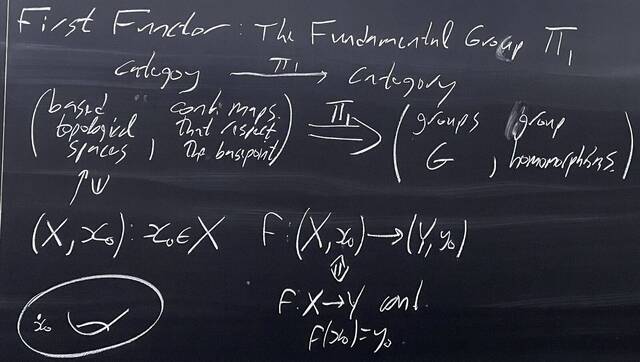 First Functor: The Fundamental Group π₁
category —π₁→ category
(based topological spaces, cont. maps that respect the basepoint) =π₁⇒ (groups G, group homomorphisms)
(X, x₀): x₀ ∈ X f: (X, x₀) → (Y, y₀)
f: X → Y cont.
f(x₀) = y₀
x₀